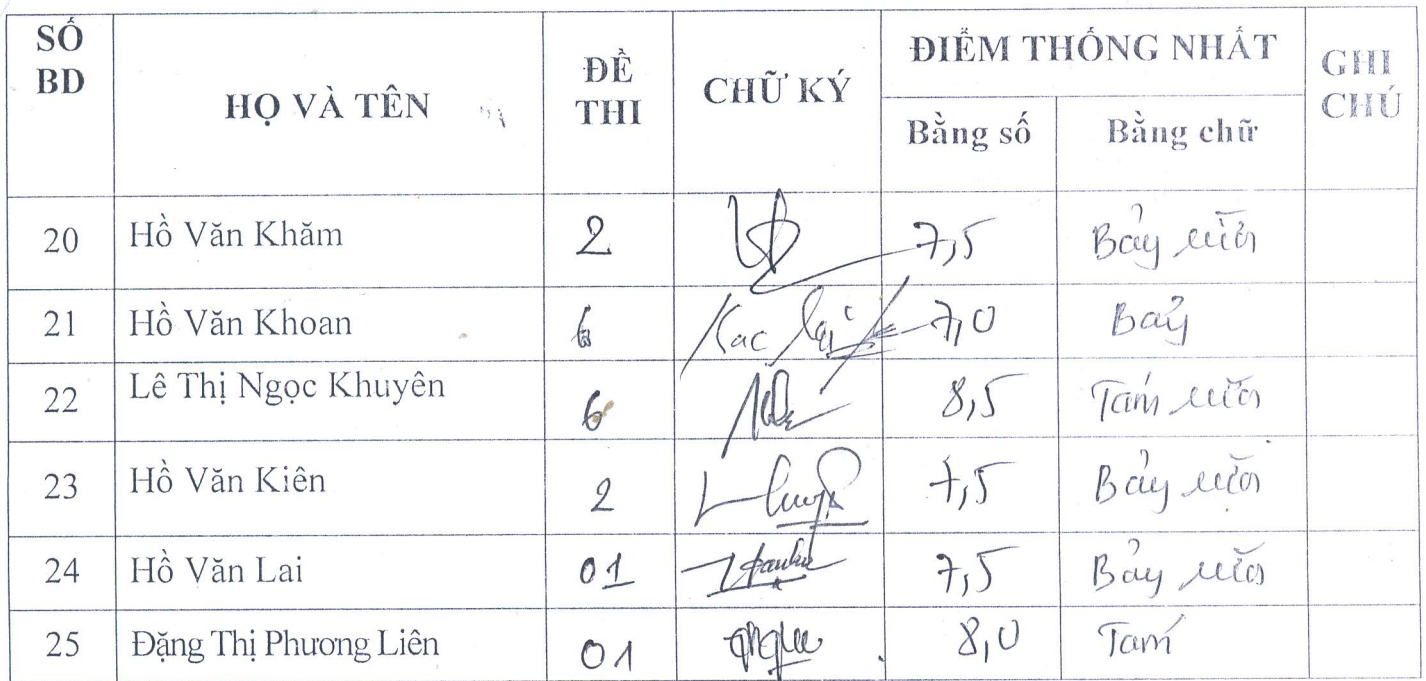 SỐ BD HỌ VÀ TÊN ĐỀ THI CHỮ KÝ ĐIỂM THỐNG NHẤT GHI CHÚ
Bằng số Bằng chữ
20 Hồ Văn Khăm 2 7,5 Bảy rưỡi
21 Hồ Văn Khoan 6 7,0 Bảy
22 Lê Thị Ngọc Khuyên 6 8,5 Tám rưỡi
23 Hồ Văn Kiên 2 7,5 Bảy rưỡi
24 Hồ Văn Lai 01 7,5 Bảy rưỡi
25 Đặng Thị Phương Liên 01 8,0 Tám